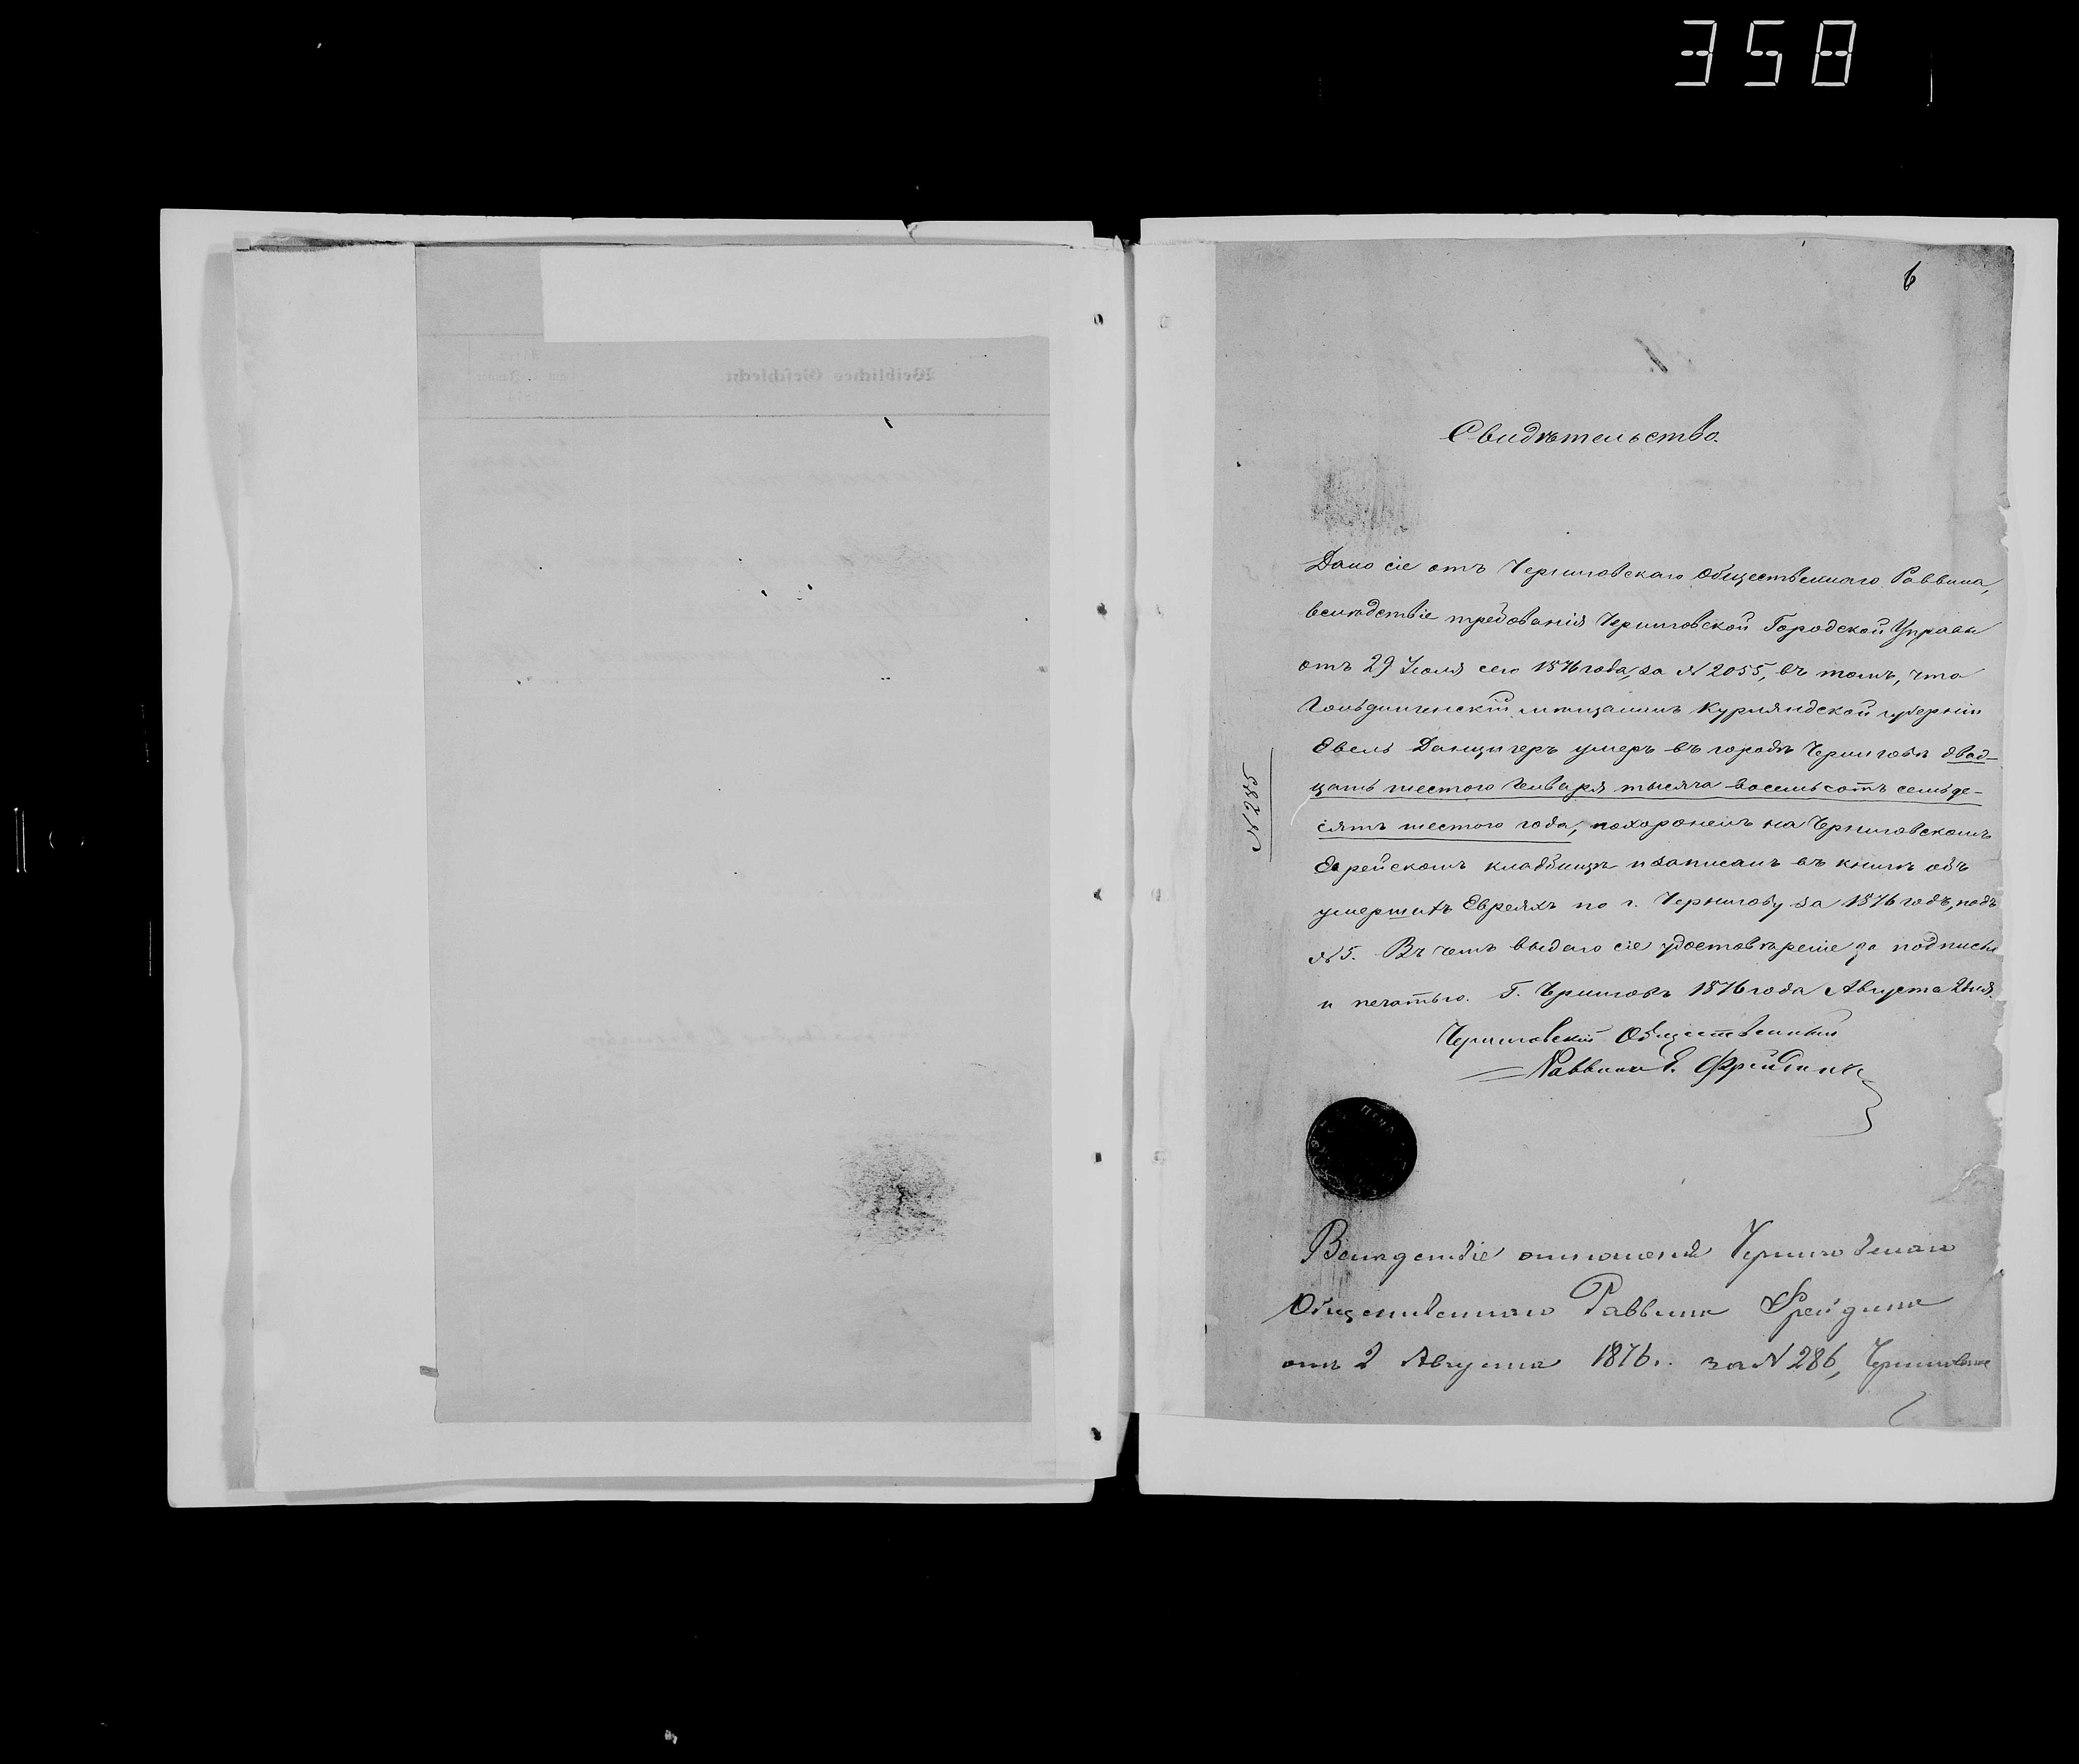 358
6
Свидѣтельство.
Дано сіе отъ Черниговскаго Общественнаго Раввина,
вслѣдствіе требованія Черниговской Городской Управы
отъ 29 Іюля сего 1876 года, за № 2055, въ томъ, что
Гольдингенскій мѣщанинъ Курляндской губерніи
Евель Данцигеръ умеръ въ городѣ Черниговѣ двад-
цать шестого Января тысяча восемьсотъ семьде-
сятъ шестого года, похороненъ на Черниговскомъ
Еврейскомъ кладбищѣ и записанъ въ книгѣ объ
умершихъ Евреяхъ по г. Чернигову за 1876 годъ, подъ
№ 5. Въ чемъ выдано сіе удостовѣреніе за подписью
и печатью. Г. Черниговъ 1876 года Августа 2 дня.
Черниговскій Общественный
Раввинъ Е. Фрейдинъ
№ 285
Вслѣдствіе отношенія Черниговскаго
Общественнаго Раввина Фрейдина
отъ 2 Августа 1876 г. за № 286, Черниговское
Weibliches Geschlecht